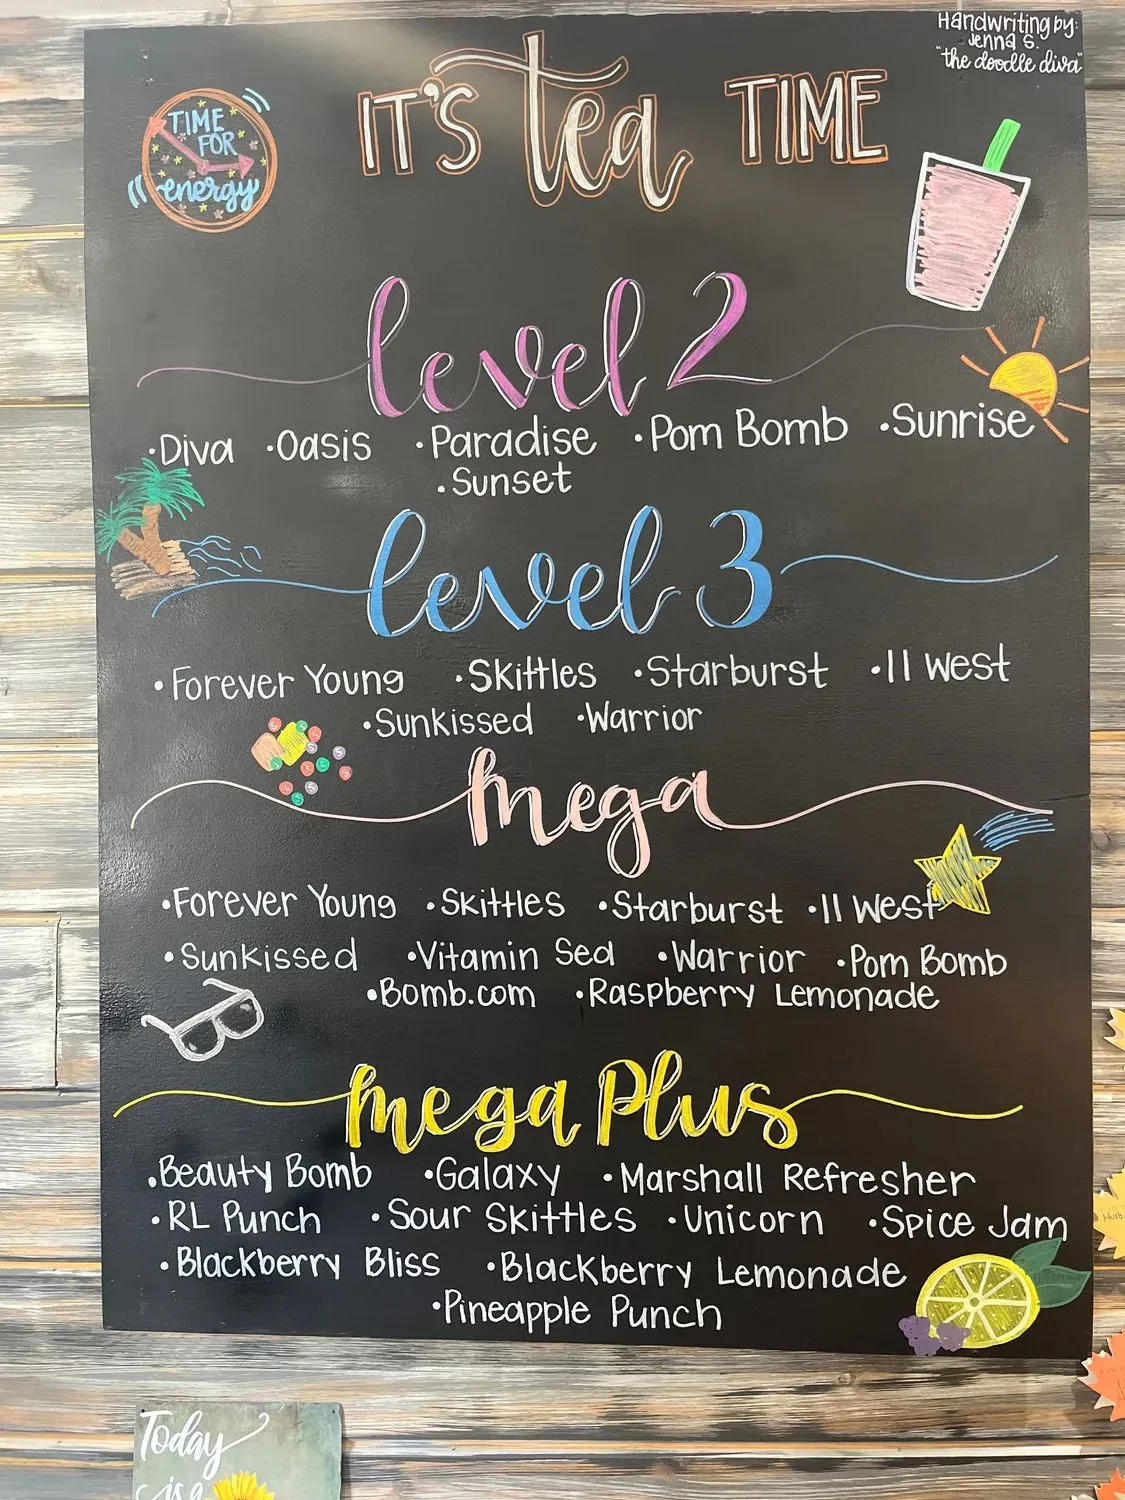 Handwriting by:
Jenna S.
"the doodle diva"
IT'S tea TIME
TIME
FOR
energy
level 2
•Diva •Oasis •Paradise •Pom Bomb •Sunrise
•Sunset
level 3
•Forever Young •Skittles •Starburst •11 West
•Sunkissed •Warrior
mega
•Forever Young •Skittles •Starburst •11 West
•Sunkissed •Vitamin Sea •Warrior •Pom Bomb
•Bomb.com •Raspberry Lemonade
mega Plus
•Beauty Bomb •Galaxy •Marshall Refresher
•RL Punch •Sour Skittles •Unicorn •Spice Jam
•Blackberry Bliss •Blackberry Lemonade
•Pineapple Punch
Today
is a